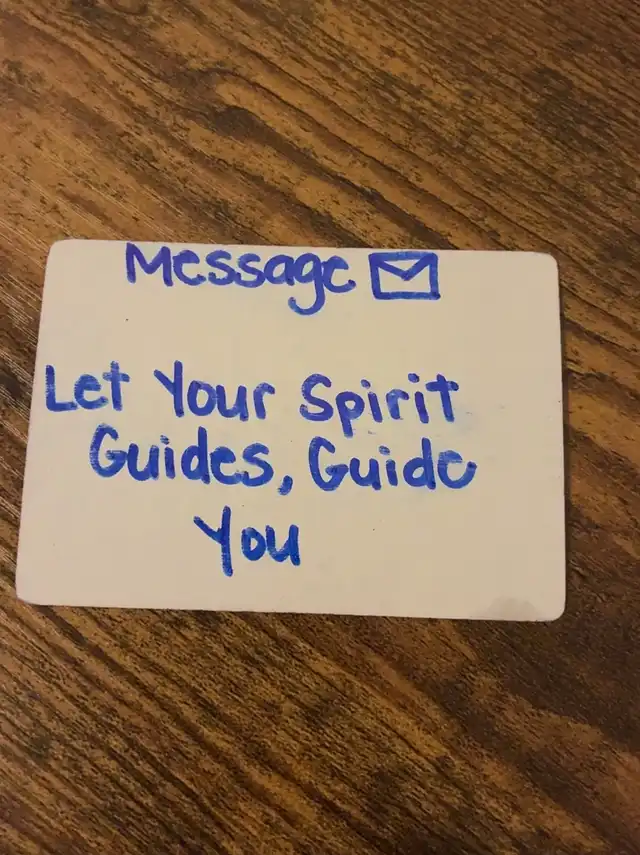 Message
Let Your Spirit
Guides, Guide
You